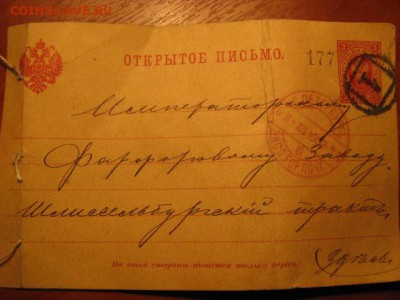 coins.su
ОТКРЫТОЕ ПИСЬМО.
177
Императорскому
Фарфоровому Заводу
Шлиссельбургскій трактъ
На этой сторонѣ пишется только адресъ.